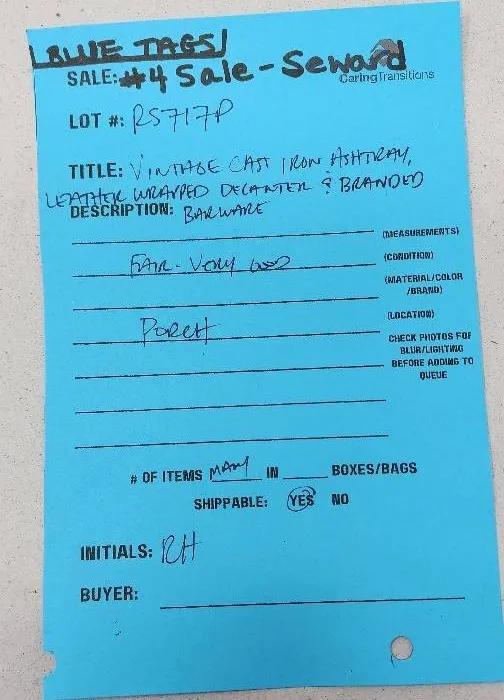 BLUE TAGS
SALE: #4 Sale - Seward
CaringTransitions
LOT #: RS717P
TITLE: VINTAGE CAST IRON ASHTRAY,
LEATHER WRAPPED DECANTER & BRANDED
DESCRIPTION: BARWARE
(MEASUREMENTS)
FAIR - VERY GOOD (CONDITION)
(MATERIAL/COLOR
/BRAND)
PORCH (LOCATION)
CHECK PHOTOS FOR
BLUR/LIGHTING
BEFORE ADDING TO
QUEUE
# OF ITEMS MANY IN BOXES/BAGS
SHIPPABLE: YES NO
INITIALS: RH
BUYER: